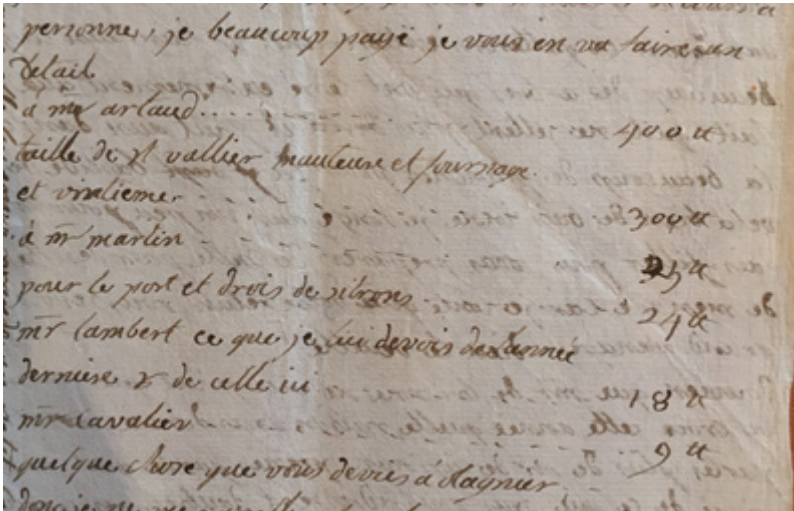 personne, je beaucoup payë je vous en va faire un
Detail
à mr arlaud..... 400 tt
taille de st vallier et
et 300 tt
à mr martin 25 tt
pour le port et drois de sitrons 24 tt
mr lambert ce que je lui devois de lannée
derniere & de celle ici 18 tt
mr Cavalier 9 tt
quelque chose que vous devies à